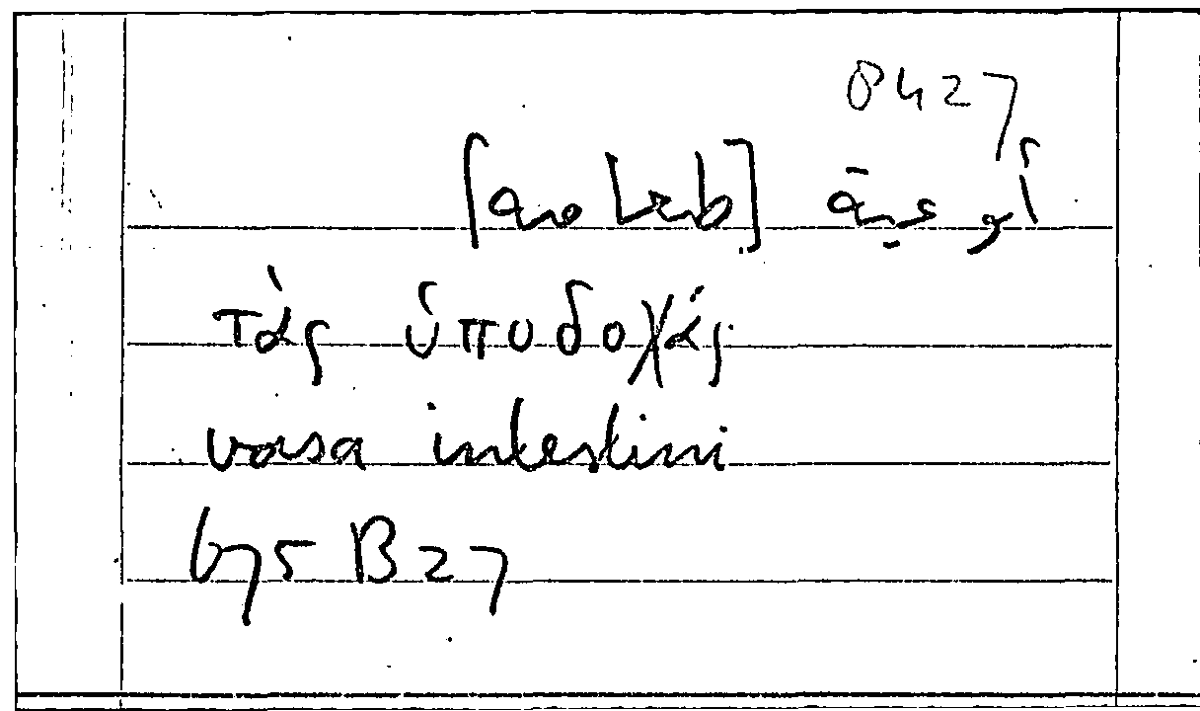 0427
أوعية
τὰς ὑποδοχάς
vasa intestini
675 B 27